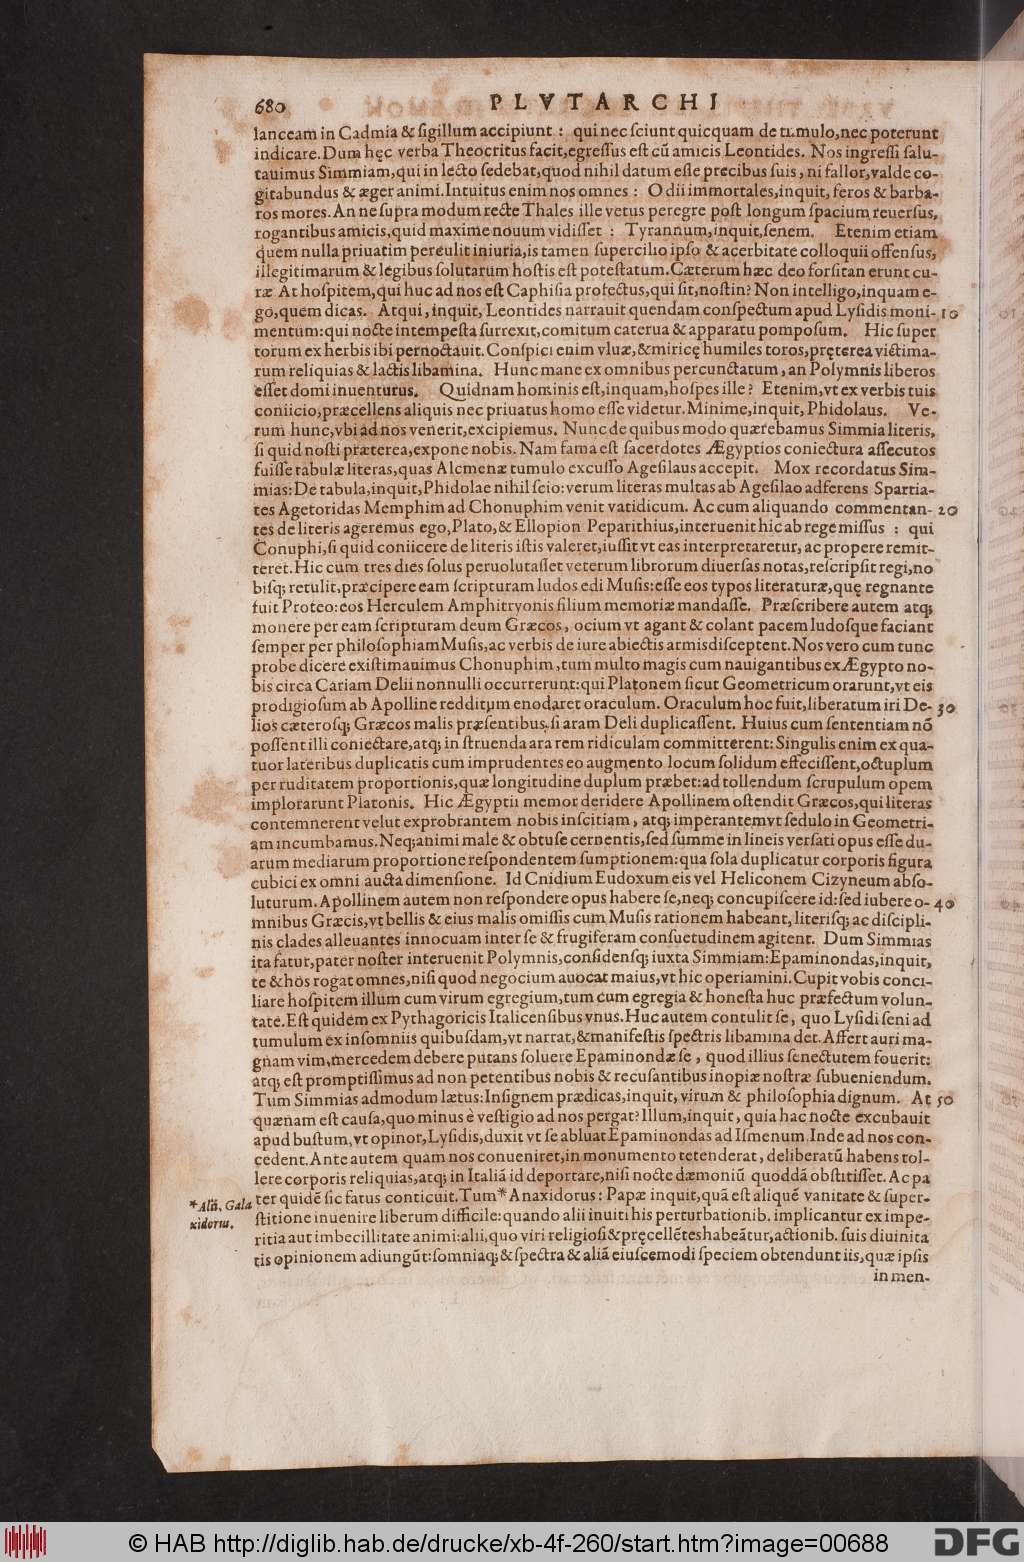 680 PLVTARCHI
lanceam in Cadmia & sigillum accipiunt : qui nec sciunt quicquam de tumulo, nec poterunt
indicare. Dum hęc verba Theocritus facit, egressus est cũ amicis Leontides. Nos ingressi salu-
tauimus Simmiam, qui in lecto sedebat, quod nihil datum esse precibus suis, ni fallor, valde co-
gitabundus & æger animi. Intuitus enim nos omnes : O dii immortales, inquit, feros & barba-
ros mores. An ne supra modum recte Thales ille vetus peregre post longum spacium reuersus,
rogantibus amicis, quid maxime nouum vidisset : Tyrannum, inquit, senem. Etenim etiam
quem nulla priuatim perculit iniuria, is tamen supercilio ipso & acerbitate colloquii offensus,
illegitimarum & legibus solutarum hostis est potestatum. Cæterum hæc deo forsitan erunt cu-
ræ At hospitem, qui huc ad nos est Caphisia profectus, qui sit, nostin? Non intelligo, inquam e-
go, quem dicas. Atqui, inquit, Leontides narrauit quendam conspectum apud Lysidis moni- 10
mentum: qui nocte intempesta surrexit, comitum caterua & apparatu pomposum. Hic super
torum ex herbis ibi pernoctauit. Conspici enim vluæ, & miricę humiles toros, pręterea victima-
rum reliquias & lactis libamina. Hunc mane ex omnibus percunctatum, an Polymnis liberos
esset domi inuenturus. Quidnam hominis est, inquam, hospes ille? Etenim, vt ex verbis tuis
coniicio, præcellens aliquis nec priuatus homo esse videtur. Minime, inquit, Phidolaus. Ve-
rum hunc, vbi ad nos venerit, excipiemus. Nunc de quibus modo quærebamus Simmia literis,
si quid nosti præterea, expone nobis. Nam fama est sacerdotes Ægyptios coniectura assecutos
fuisse tabulæ literas, quas Alcmenæ tumulo excusso Agesilaus accepit. Mox recordatus Sim-
mias: De tabula, inquit, Phidolae nihil scio: verum literas multas ab Agesilao adferens Spartia-
tes Agetoridas Memphim ad Chonuphim venit vatidicum. Ac cum aliquando commentan- 20
tes de literis ageremus ego, Plato, & Ellopion Peparithius, interuenit hic ab rege missus : qui
Conuphi, si quid coniicere de literis istis valeret, iussit vt eas interpretaretur, ac propere remit-
teret. Hic cum tres dies solus peruolutasset veterum librorum diuersas notas, rescripsit regi, no
bisq; retulit, præcipere eam scripturam ludos edi Musis: esse eos typos literaturæ, quę regnante
fuit Proteo: eos Herculem Amphitryonis filium memoriæ mandasse. Præscribere autem atq;
monere per eam scripturam deum Græcos, ocium vt agant & colant pacem ludosque faciant
semper per philosophiam Musis, ac verbis de iure abiectis armis disceptent. Nos vero cum tunc
probe dicere existimauimus Chonuphim, tum multo magis cum nauigantibus ex Ægypto no-
bis circa Cariam Delii nonnulli occurrerunt: qui Platonem sicut Geometricum orarunt, vt eis
prodigiosum ab Apolline redditum enodaret oraculum. Oraculum hoc fuit, liberatum iri De- 30
lios cæterosq; Græcos malis præsentibus, si aram Deli duplicassent. Huius cum sententiam nõ
possent illi coniectare, atq; in struenda ara rem ridiculam committerent: Singulis enim ex qua-
tuor lateribus duplicatis cum imprudentes eo augmento locum solidum effecissent, octuplum
per ruditatem proportionis, quæ longitudine duplum præbet: ad tollendum scrupulum opem
implorarunt Platonis. Hic Ægyptii memor deridere Apollinem ostendit Græcos, qui literas
contemnerent velut exprobrantem nobis inscitiam, atq; imperantem vt sedulo in Geometri-
am incumbamus. Neq; animi male & obtuse cernentis, sed summe in lineis versati opus esse du-
arum mediarum proportione respondentem sumptionem: qua sola duplicatur corporis figura
cubici ex omni aucta dimensione. Id Cnidium Eudoxum eis vel Heliconem Cizyneum abso-
luturum. Apollinem autem non respondere opus habere se, neq; concupiscere id: sed iubere o- 40
mnibus Græcis, vt bellis & eius malis omissis cum Musis rationem habeant, literisq; ac discipli-
nis clades alleuantes innocuam inter se & frugiferam consuetudinem agitent. Dum Simmias
ita fatur, pater noster interuenit Polymnis, confidensq; iuxta Simmiam: Epaminondas, inquit,
te & hos rogat omnes, nisi quod negocium auocat maius, vt hic operiamini. Cupit vobis conci-
liare hospitem illum cum virum egregium, tum cum egregia & honesta huc præfectum volun-
tate. Est quidem ex Pythagoricis Italicensibus vnus. Huc autem contulit se, quo Lysidi seni ad
tumulum ex insomniis quibusdam, vt narrat, & manifestis spectris libamina det. Affert auri ma-
gnam vim, mercedem debere putans soluere Epaminondæ se, quod illius senectutem fouerit:
atq; est promptissimus ad non petentibus nobis & recusantibus inopiæ nostræ subueniendum.
Tum Simmias admodum lætus: Insignem prædicas, inquit, virum & philosophia dignum. At 50
quænam est causa, quo minus è vestigio ad nos pergat? Illum, inquit, quia hac nocte excubauit
apud bustum, vt opinor, Lysidis, duxit vt se abluat Epaminondas ad Ismenum. Inde ad nos con-
cedent. Ante autem quam nos conueniret, in monumento tetenderat, deliberatũ habens tol-
lere corporis reliquias, atq; in Italiã id deportare, nisi nocte dæmoniũ quoddã obstitisset. Ac pa
ter quidẽ sic fatus conticuit. Tum* Anaxidorus: Papæ inquit, quã est aliquẽ vanitate & super-
*Alii, Gala
xidorus.
stitione inuenire liberum difficile: quando alii inuiti his perturbationib. implicantur ex impe-
ritia aut imbecillitate animi: alii, quo viri religiosi & pręcellẽtes habeãtur, actionib. suis diuinita
tis opinionem adiungũt: somniaq; & spectra & aliã eiuscemodi speciem obtendunt iis, quæ ipsis
in men-
© HAB http://diglib.hab.de/drucke/xb-4f-260/start.htm?image=00688
DFG